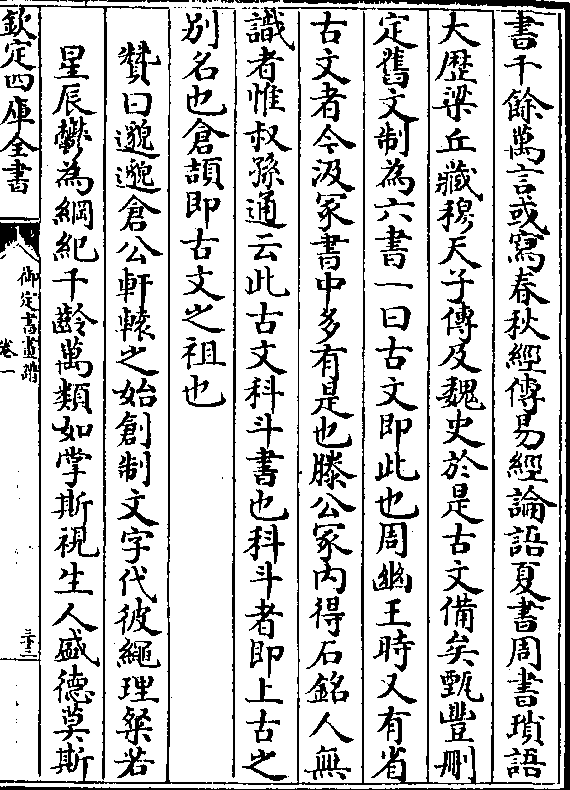 書千餘萬言或寫春秋經傳易經論語夏書周書瑣語
大歴梁丘藏穆天子傳及魏史於是古文備矣甄豐刪
定舊文制為六書一曰古文即此也周幽王時又有省
古文者今汲冢書中多有是也滕公冢內得石銘人無
識者惟叔孫通云此古文科斗書也科斗者即上古之
別名也倉頡即古文之祖也
贊曰邈邈倉公軒轅之始創制文字代彼繩理粲若
星辰鬱為綱紀千齡萬類如掌斯視生人盛德莫斯
欽定四庫全書
御定書畫譜
卷一
三十三